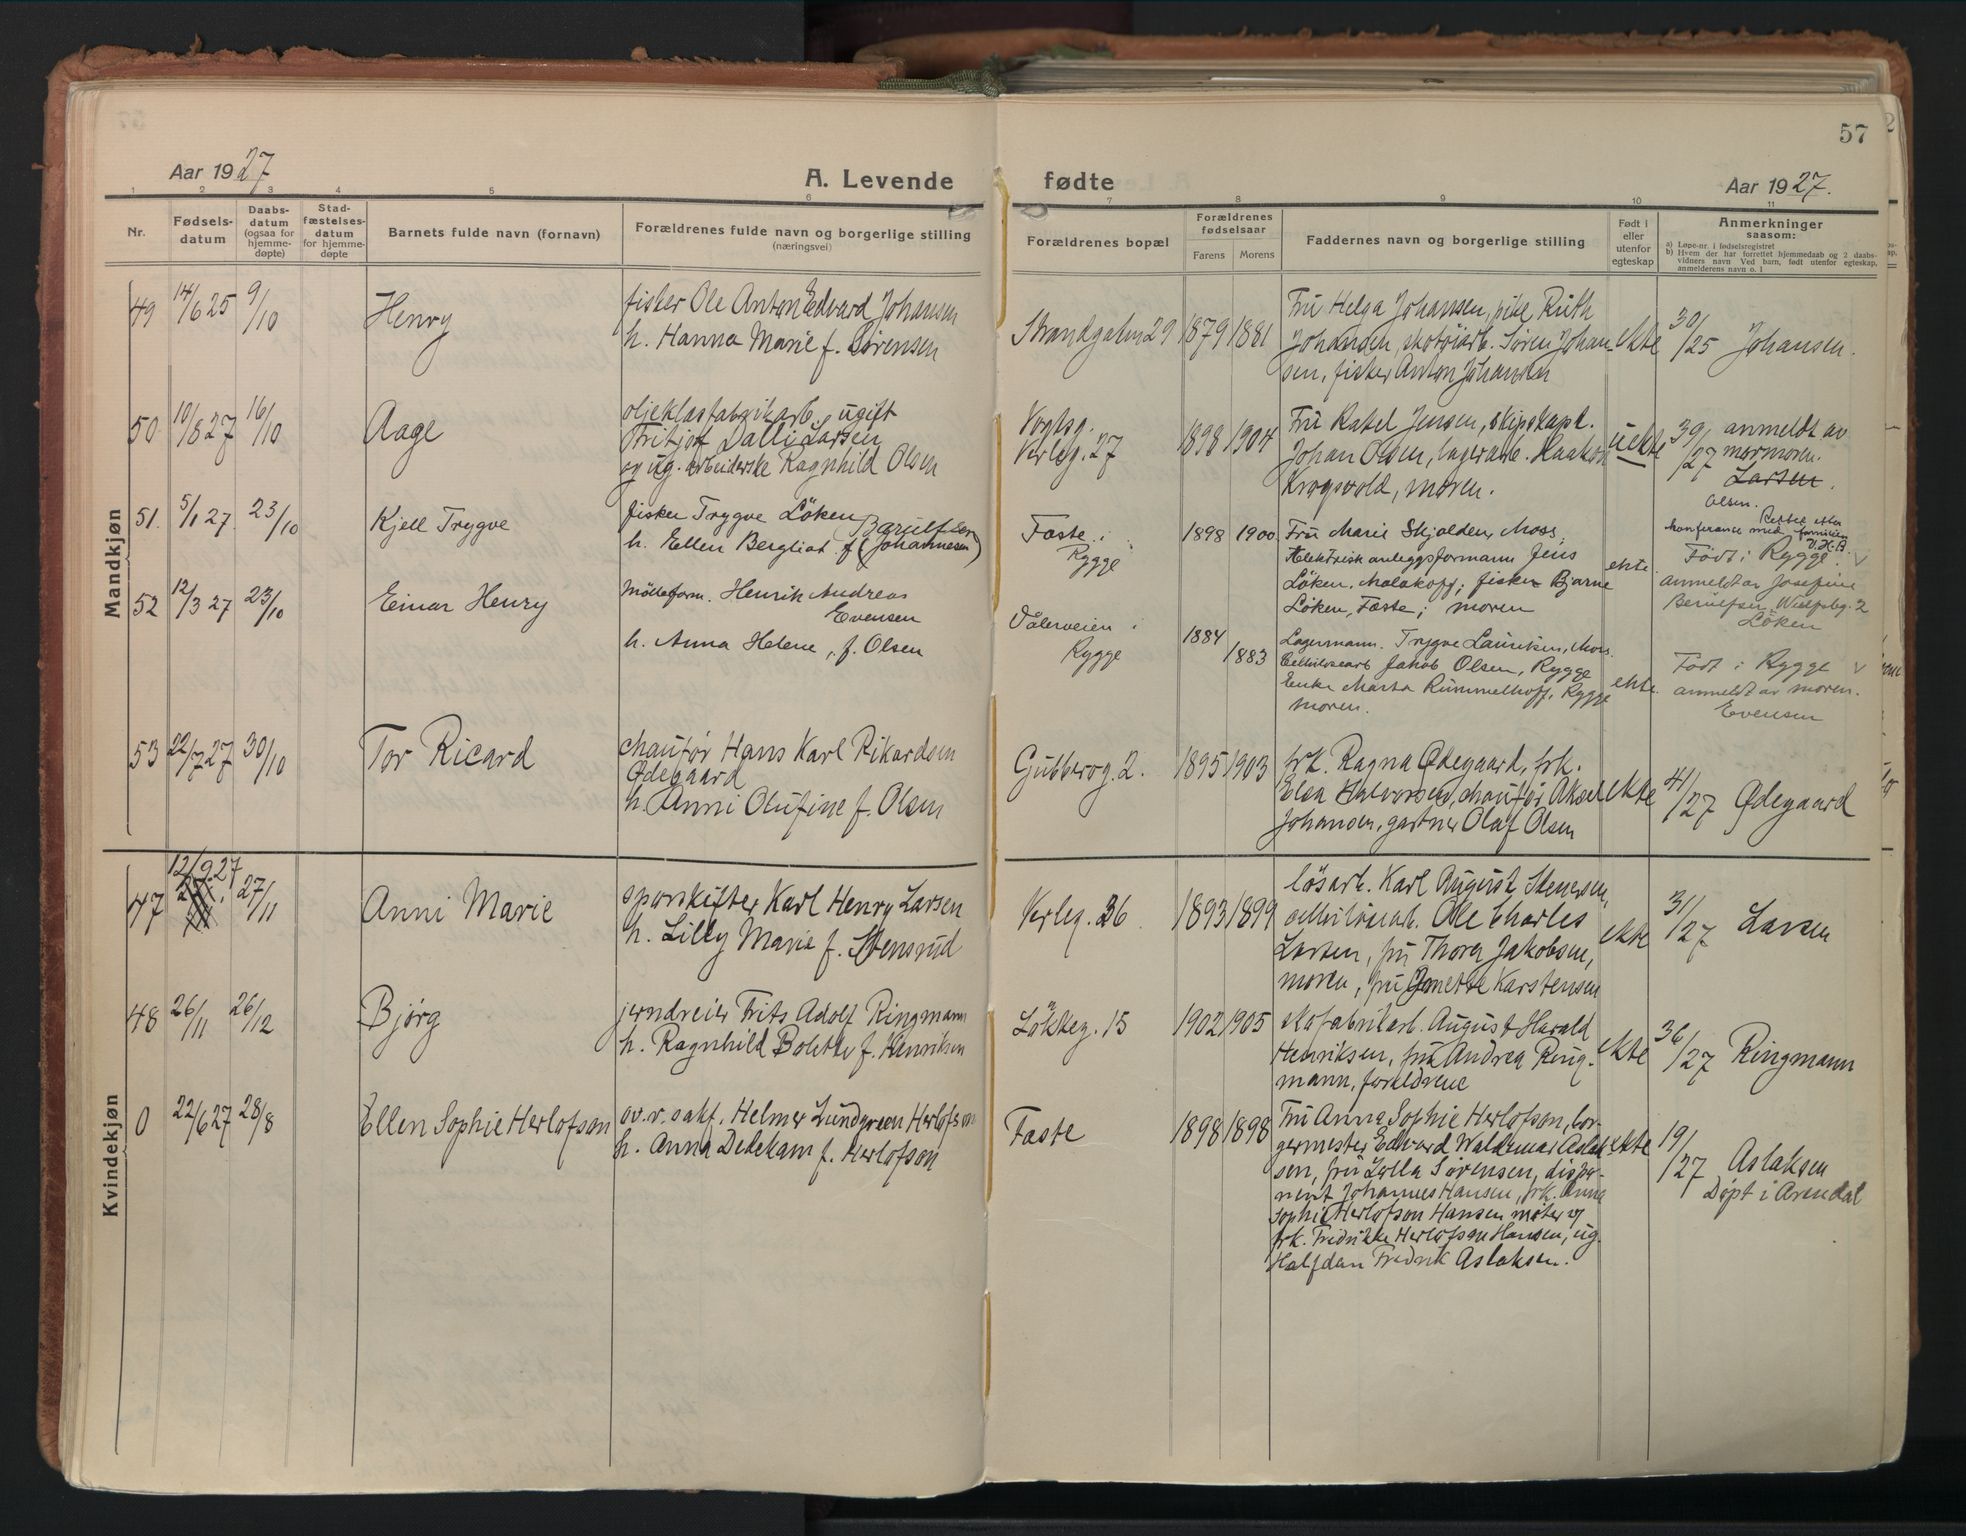 57
Aar 1927
A. Levende fødte
Aar 1927.
1 2 3 4 5 6 7 8 9 10 11
Nr.
Fødsels-
datum
Daabs-
datum
(ogsaa for
hjemme-
døpte)
Stad-
fæstelses-
datum
for hjemme-
døpte
Barnets fulde navn (fornavn)
Forældrenes fulde navn og borgerlige stilling
(næringsvei)
Forældrenes bopæl
Forældrenes
fødselsaar
Farens Morens
Faddernes navn og borgerlige stilling
Født i
eller
utenfor
egteskap
Anmerkninger
saasom:
a) Løpe-nr. i fødselsregistret
b) Hvem der har forrettet hjemmedaab og 2 daabs-
vidners navn Ved barn, født utenfor egteskap,
anmelderens navn o. l
Mandkjøn
49 14/6 25 9/10 Henry
fisker Ole Anton Edvard Johansen
h. Hanna Marie f. Sørensen
Strandgaten 29 1879 1881
Fru Helga Johansen, pike Ruth
Johansen, skotøiarb. Søren Johan-
sen, fisker Anton Johansen
ekte 30/25 Johansen.
50 10/8 27 16/10 Aage
oljeklæsfabrikarb. ugift
Fritjof Dalli Larsen
og ug. arbeiderske Ragnhild Olsen
Vogtsg.
Verleg. 27 1898 1904
Fru Rakel Jensen, skipskapt.
Johan Olsen, lagerarb. Haakon
Krogsvold, moren.
uekte 39/27 anmeldt av
mormoren.
Larsen.
Olsen.
51. 5/1 27. 23/10 Kjell Trygve
fisker Trygve Løken
h. Ellen Bergliot f. (Johannesen)
Berulfsen
Faste i
Rygge 1898 1900
Fru Marie Skjolden, Moss;
Elektrisk anleggsformann Jens
Løken, Malakoff; fisker Bjarne
Løken, Faste; moren
ekte.
Rettet efter
konferanse med familien
V.H.B.
Født i Rygge. v
anmeldt av Josefine
Berulfsen, 2
Løken
52 12/3 27 23/10 Einar Henry
Mølleform. Henrik Andreas
Evensen
h. Anna Helene, f. Olsen
Vålerveien i
Rygge 1884
1883
Lagermann. Trygve Lauritsen, Moss.
Cellulosearb Jakob Olsen, Rygge
Enke Marta Rummelhoff, Rygge
moren.
ekte.
Født i Rygge v
anmeldt av moren.
Evensen
53 22/7 27 30/10 Tor Ricard
chauffør Hans Karl Rikardsen
Ødegaard
h. Anni Olufine f. Olsen
Gubberog. 2. 1895 1903
frk. Ragna Ødegaard, frk.
Elsa Halvorsen, chauffør Aksel
Johansen, gartner Olaf Olsen
ekte 41/27 Ødegaard
Kvindekjøn
47 12/9.27 27/11 Anni Marie
sporskifter Karl Henry Larsen
h. Lilly Marie f. Stensrud
Verleg. 36. 1893 1899
løsarb. Karl August Stenersen,
cellulosearb. Ole Charles
Larsen, fru Thora Jakobsen,
moren, fru Karstensen
ekte 31/27 Larsen
48 26/11 26/12 Bjørg
jerndreier Frits Adolf Ringmann
h. Ragnhild Bolette f. Henriksen
Løkkeg. 15 1902 1905
skofabrikarb. August Harald
Henriksen, fru Andrea Ring-
mann, foreldrene
ekte 36/27 Ringmann
0 22/6 27 28/8 Ellen Sophie Herlofson
ov.r. sakf. Helmer Lundgreen Herlofson
h. Anna Dedekam f. Herlofson
Faste 1898 1898
Fru Anna Sophie Herlofson, bor-
germester Edvard Waldemar Aslak-
sen, fru Lolla Sørensen, dispo-
nent Johannes Hansen, frk. Anne
Sophie Herlofson Hansen
frk. Fredrikke Herlofson Hansen, ug.
Halfdan Fredrik Aslaksen.
ekte 19/27 Aslaksen
Døpt i Arendal